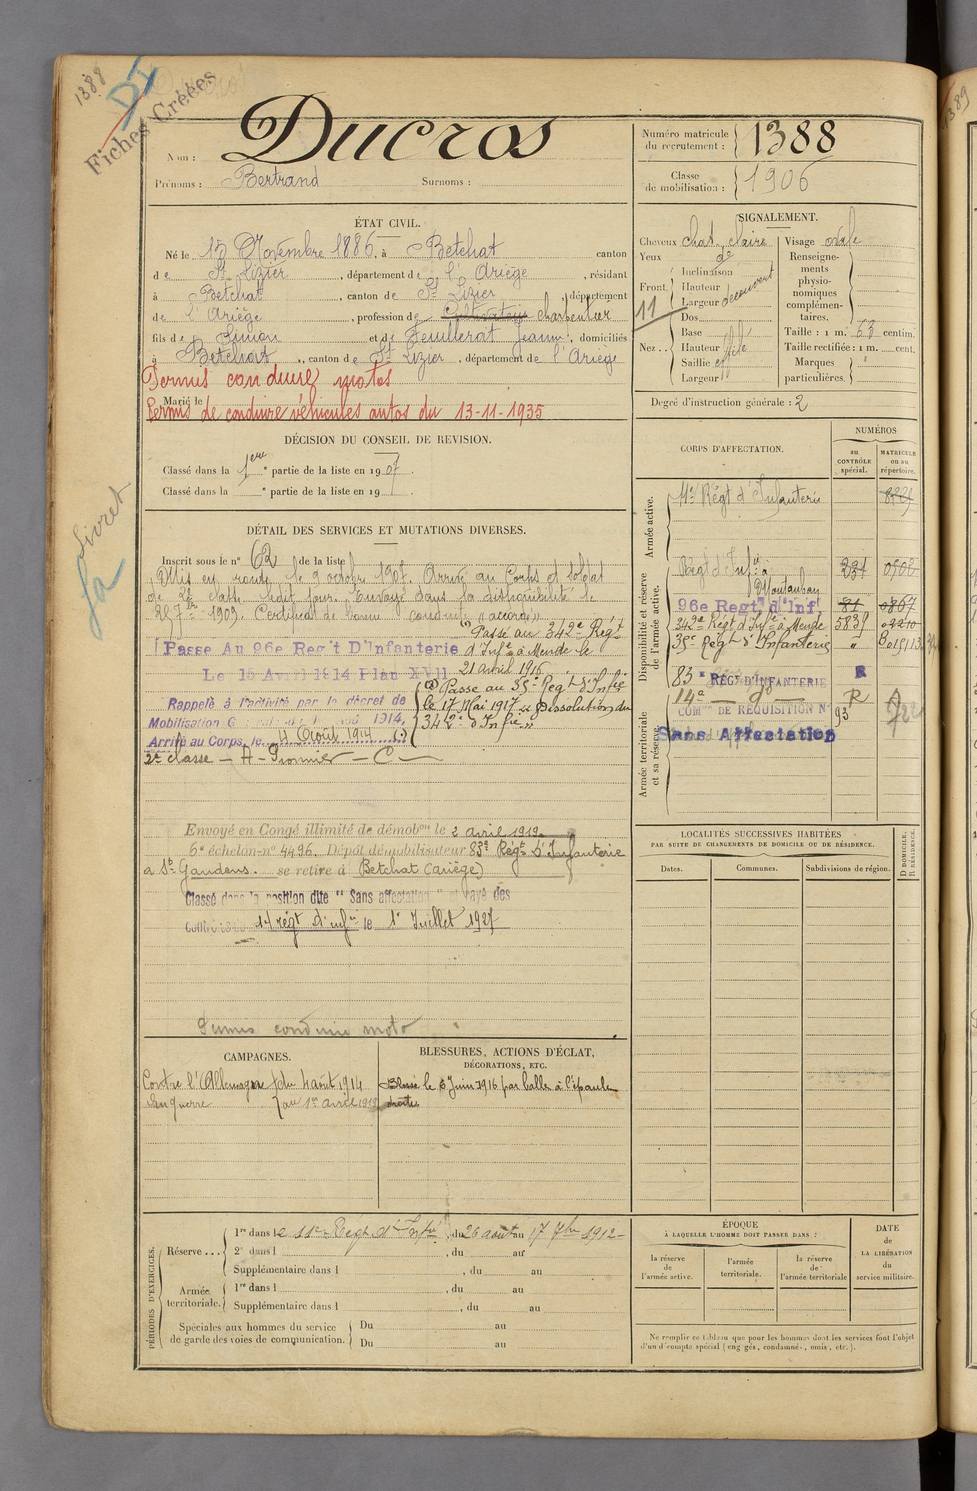 1388
DI
Fiches Créées
Nom : Ducros
Prénoms : Bertrand Surnoms :
Numéro matricule du recrutement : 1388
Classe de mobilisation : 1906
ÉTAT CIVIL.
Né le 15 Novembre 1886, à Betchat canton
de St Lizier, département de l'Ariège, résidant
à Betchat, canton de St Lizier, département
de l'Ariège, profession de Cultivateur charpentier
fils de Simon et de Feuillerat Jeanne, domiciliés
à Betchat, canton de St Lizier, département de l'Ariège
Permis conduire motos
Marié le
Permis de conduire véhicules autos du 13-11-1935
SIGNALEMENT.
Cheveux chat. claire Visage ovale
Yeux do
Front. Inclinaison
Hauteur
Largeur découvert
11
Nez.. Dos
Base
Hauteur
Saillie effilé
Largeur
Renseignements physionomiques complémentaires.
Taille : 1 m. 63 centim.
Taille rectifiée : 1 m. cent.
Marques particulières. "
Degré d'instruction générale : 2
DÉCISION DU CONSEIL DE REVISION.
Classé dans la 1ere partie de la liste en 1907.
Classé dans la e partie de la liste en 19
La Livret
DÉTAIL DES SERVICES ET MUTATIONS DIVERSES.
Inscrit sous le n° 62 de la liste
Mis en route le 9 octobre 1907. Arrivé au Corps et Soldat
de 2e classe ledit jour. Envoyé dans la disponibilité le
25 7bre 1909. Certificat de bonne conduite "accordé"
Passé au 342e Régt
d'Infie à Mende le
21 avril 1916
Passe Au 96e Reg't D'Infanterie
Le 15 Avril 1914 Plan XVII
Rappelé à l'activité par le décret de
Mobilisation G
Arrivé au Corps, le 4 Août 1914
Passé au 35e Régt d'Infie
le 17 Mai 1917 "Dissolution du
342e d'Infie"
2e classe — A - Pionnier — C —
Envoyé en Congé illimité de démobon le 2 avril 1919
6e échelon-no 4496. Dépôt démobilisateur 83e Régt d'Infanterie
à St Gaudens. se retire à Betchat (Ariège)
Classé dans la position dite "Sans affectation" et rayé des
contrôles du 14 régt d'infie le 1er Juillet 1927
Permis conduire moto
CORPS D'AFFECTATION.
NUMÉROS
au CONTRÔLE spécial.
MATRICULE ou au répertoire.
Armée active.
Régt d'Infanterie
Disponibilité et réserve de l'armée active.
Régt d'Infie à Montauban
96e Regt d'Inf. 81 0867
342e Régt d'Infie à Mende 5839
35e Régt d'Infanterie "
Armée territoriale et sa réserve
83e RÉGt D'INFANTERIE R
14e do R
COMon DE RÉQUISITION N° 93
Sans Affectation
LOCALITÉS SUCCESSIVES HABITÉES
PAR SUITE DE CHANGEMENTS DE DOMICILE OU DE RÉSIDENCE.
Dates. Communes. Subdivisions de région. D DOMICILE. R RÉSIDENCE.
CAMPAGNES.
Contre l'Allemagne du 4 août 1914
En guerre au 1er avril 1919
BLESSURES, ACTIONS D'ÉCLAT,
DÉCORATIONS, ETC.
Blessé le 8 Juin 1916 par balle à l'épaule
droite
PÉRIODES D'EXERCICES.
Réserve... 1re dans le 11e Régt d'Infie, du 26 août au 17 7bre 1912
2e dans l , du au
Supplémentaire dans l , du au
Armée territoriale. 1re dans l , du au
Supplémentaire dans l , du au
Spéciales aux hommes du service de garde des voies de communication. Du au
Du au
ÉPOQUE
À LAQUELLE L'HOMME DOIT PASSER DANS :
la réserve de l'armée active.
l'armée territoriale.
la réserve de l'armée territoriale
DATE de LA LIBÉRATION du service militaire.
Ne remplir ce tableau que pour les hommes dont les services font l'objet
d'un décompte spécial (engagés, condamnés, omis, etc.).